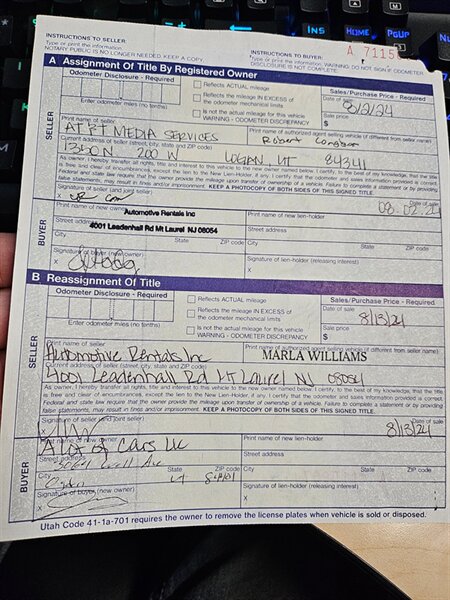 Ins HOME PgUP
INSTRUCTIONS TO SELLER
Type or print the information.
NOTARY PUBLIC IS NO LONGER NEEDED. KEEP A COPY
INSTRUCTIONS TO BUYER:
Type or print the information. WARNING: DO NOT SIGN IF ODOMETER
DISCLOSURE IS NOT COMPLETE.
A 7115
A Assignment Of Title By Registered Owner
Odometer Disclosure - Required
Enter odometer miles (no tenths)
Reflects ACTUAL mileage
Reflects the mileage in EXCESS of
the odometer mechanical limits
Is not the actual mileage for this vehicle
WARNING - ODOMETER DISCREPANCY
Sales/Purchase Price - Required
Date of sale
8/2/24
Sale price
$
SELLER
Print name of seller
AT&T MEDIA SERVICES
Print name of authorized agent selling vehicle (if different from seller name)
Robert
Current address of seller (street, city, state and ZIP code)
1350 N 200 W LOGAN, UT 84341
As owner, I hereby transfer all rights, title and interest to this vehicle to the new owner named below. I certify, to the best of my knowledge, that the title
is free and clear of encumbrances, except the lien to the New Lien-holder, if any. I certify that the odometer and sales information provided is correct.
Federal and state law require that the owner provide the mileage upon transfer of ownership of a vehicle. Failure to complete a statement or by providing
false statements, may result in fines and/or imprisonment. KEEP A PHOTOCOPY OF BOTH SIDES OF THIS SIGNED TITLE.
Signature of seller (and joint seller)
x
Date of sale
08.02.24
BUYER
Print name of new owner
Automotive Rentals Inc
Print name of new lien-holder
Street address
4001 Leadenhall Rd Mt Laurel NJ 08054
Street address
City State ZIP code
City State ZIP code
Signature of buyer (new owner)
x
Signature of lien-holder (releasing interest)
x
B Reassignment Of Title
Odometer Disclosure - Required
Enter odometer miles (no tenths)
Reflects ACTUAL mileage
Reflects the mileage in EXCESS of
the odometer mechanical limits
Is not the actual mileage for this vehicle
WARNING - ODOMETER DISCREPANCY
Sales/Purchase Price - Required
Date of sale
8/13/24
Sale price
$
SELLER
Print name of seller
Automotive Rentals Inc
Print name of authorized agent selling vehicle (if different from seller name)
MARLA WILLIAMS
Current address of seller (street, city, state and ZIP code)
4001 Leadenhall Rd Mt Laurel NJ 08054
As owner, I hereby transfer all rights, title and interest to this vehicle to the new owner named below. I certify, to the best of my knowledge, that the title
is free and clear of encumbrances, except the lien to the New Lien-holder, if any. I certify that the odometer and sales information provided is correct.
Federal and state law require that the owner provide the mileage upon transfer of ownership of a vehicle. Failure to complete a statement or by providing
false statements, may result in fines and/or imprisonment. KEEP A PHOTOCOPY OF BOTH SIDES OF THIS SIGNED TITLE.
Signature of seller (and joint seller)
x
Date of sale
8/13/24
BUYER
Print name of new owner
A lot of Cars LLC
Print name of new lien-holder
Street address
Ave
Street address
City State ZIP code
Ogden ut 84401
City State ZIP code
Signature of buyer (new owner)
x
Signature of lien-holder (releasing interest)
x
Utah Code 41-1a-701 requires the owner to remove the license plates when vehicle is sold or disposed.